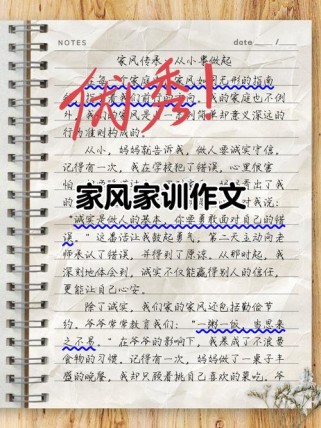 NOTES date: / /
家风传承，从小事做起
在每一个家庭中，家风如同无形的指南
我的家庭也不例
外，我们的家风是由一系列简单却意义深远的
行为准则构成的。
优秀！
从小，妈妈就告诉我，做人要诚实守信。
记得有一次，我在学校犯了错误，心里很害
怕，
家风家训作文
“诚实是做人的基本，你要勇敢面对自己的错
误。”这番话让我鼓起勇气，第二天主动向老
师承认了错误，并得到了原谅。从那时起，我
深刻地体会到，诚实不仅能赢得别人的信任，
更能让自己心安。
除了诚实，我们家的家风还包括勤俭节
约。爷爷常常教育我们：“一粥一饭，当思来
之不易。”在爷爷的影响下，我养成了不浪费
食物的习惯。记得有一次，妈妈做了一桌子丰
盛的晚餐，我却只顾着挑自己喜欢的菜吃，爷